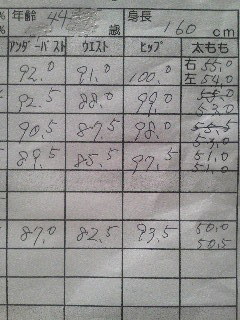 % 年齢 44 歳 身長
% 160 cm
アンダーバスト ウエスト ヒップ 太もも
92.0 91.0 100.0 右 55.0
左 54.0
92.5 88.0 99.0
53.0
90.5 87.5 98.0
89.5 85.5 97.5 51.0
51.0
87.0 82.5 93.5 50.0
50.5